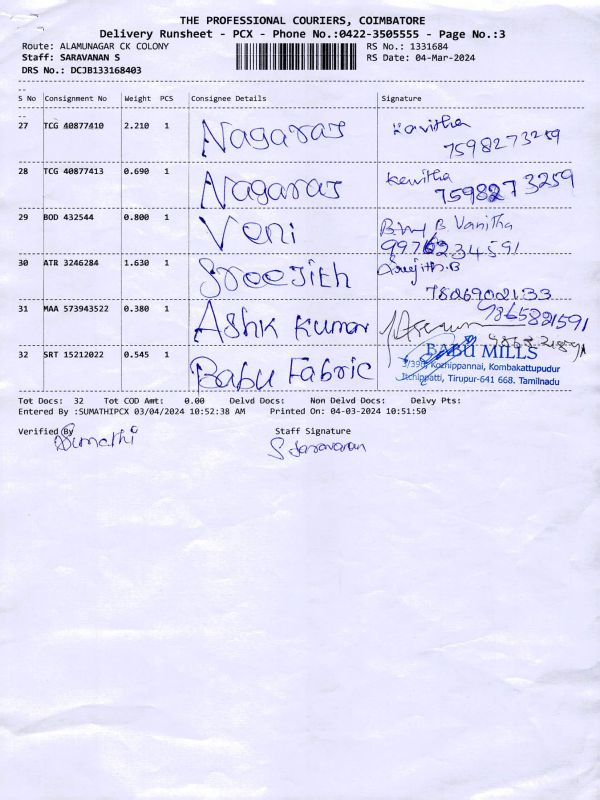 THE PROFESSIONAL COURIERS, COIMBATORE
Delivery Runsheet - PCX - Phone No.:0422-3505555 - Page No.:3
Route: ALAMUNAGAR CK COLONY RS No.: 1331684
Staff: SARAVANAN S RS Date: 04-Mar-2024
DRS No.: DCJB133168403
S No Consignment No Weight PCS Consignee Details Signature
27 TCG 40877410 2.210 1 Nagaraj Kavitha
7598273259
28 TCG 40877413 0.690 1 Nagaraj Kavitha
7598273259
29 BOD 432544 0.800 1 Veni B. Vanitha
9976234591
30 ATR 3246284 1.630 1 Sreejith Sreejith.B
7826902133
31 MAA 573943522 0.380 1 Ashk Kumar 9865821591
32 SRT 15212022 0.545 1 Babu Fabric BABU MILLS
3/396, Kozhippannai, Kombakattupudur
Itchippatti, Tirupur-641 668. Tamilnadu
Tot Docs: 32 Tot COD Amt: 0.00 Delvd Docs: Non Delvd Docs: Delvy Pts:
Entered By :SUMATHIPCX 03/04/2024 10:52:38 AM Printed On: 04-03-2024 10:51:50
Verified By Staff Signature
Sumathi S Saravanan